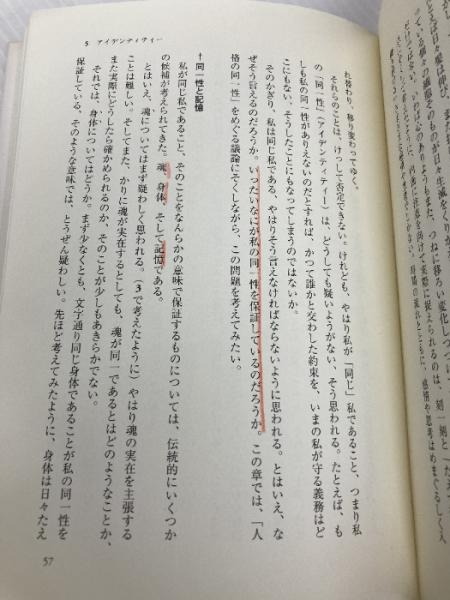 5 アイデンティティー
れ替わり、移り変わってゆく。
それらのことは、けっして否定できない。けれども、やはり私が「同じ」私であること、つまり私
の「同一性」（アイデンティティー）は、どうしても疑いようがない、そう思われる。たとえば、も
しも私の同一性がありえないのだとすれば、かつて誰かと交わした約束を、いまの私が守る義務はど
こにもない、そうしたことにもなってしまうのではないか。
そのかぎり、私は同じ私である、やはりそう言えなければならないように思われる。とはいえ、な
ぜそう言えるのだろうか。いったいなにが私の同一性を保証しているのだろうか。この章では、「人
格の同一性」をめぐる議論にそくしながら、この問題を考えてみたい。
†同一性と記憶
私が同じ私であること、そのことをなんらかの意味で保証するものについては、伝統的にいくつか
の候補が考えられてきた。魂、身体、そして記憶である。
とはいえ、魂についてはまず疑わしく思われる。（3で考えたように）やはり魂の実在を主張する
ことは難しい。そしてまた、かりに魂が実在するとしても、魂が同一であるとはどのようなことか、
また実際にどうしたら確かめられるのか、そのことが少しもあきらかでない。
それでは、身体についてはどうか。まず少なくとも、文字通り同じ身体であることが私の同一性を
保証している、そのような意味では、とうぜん疑わしい。先ほど考えてみたように、身体は日々たえ
57